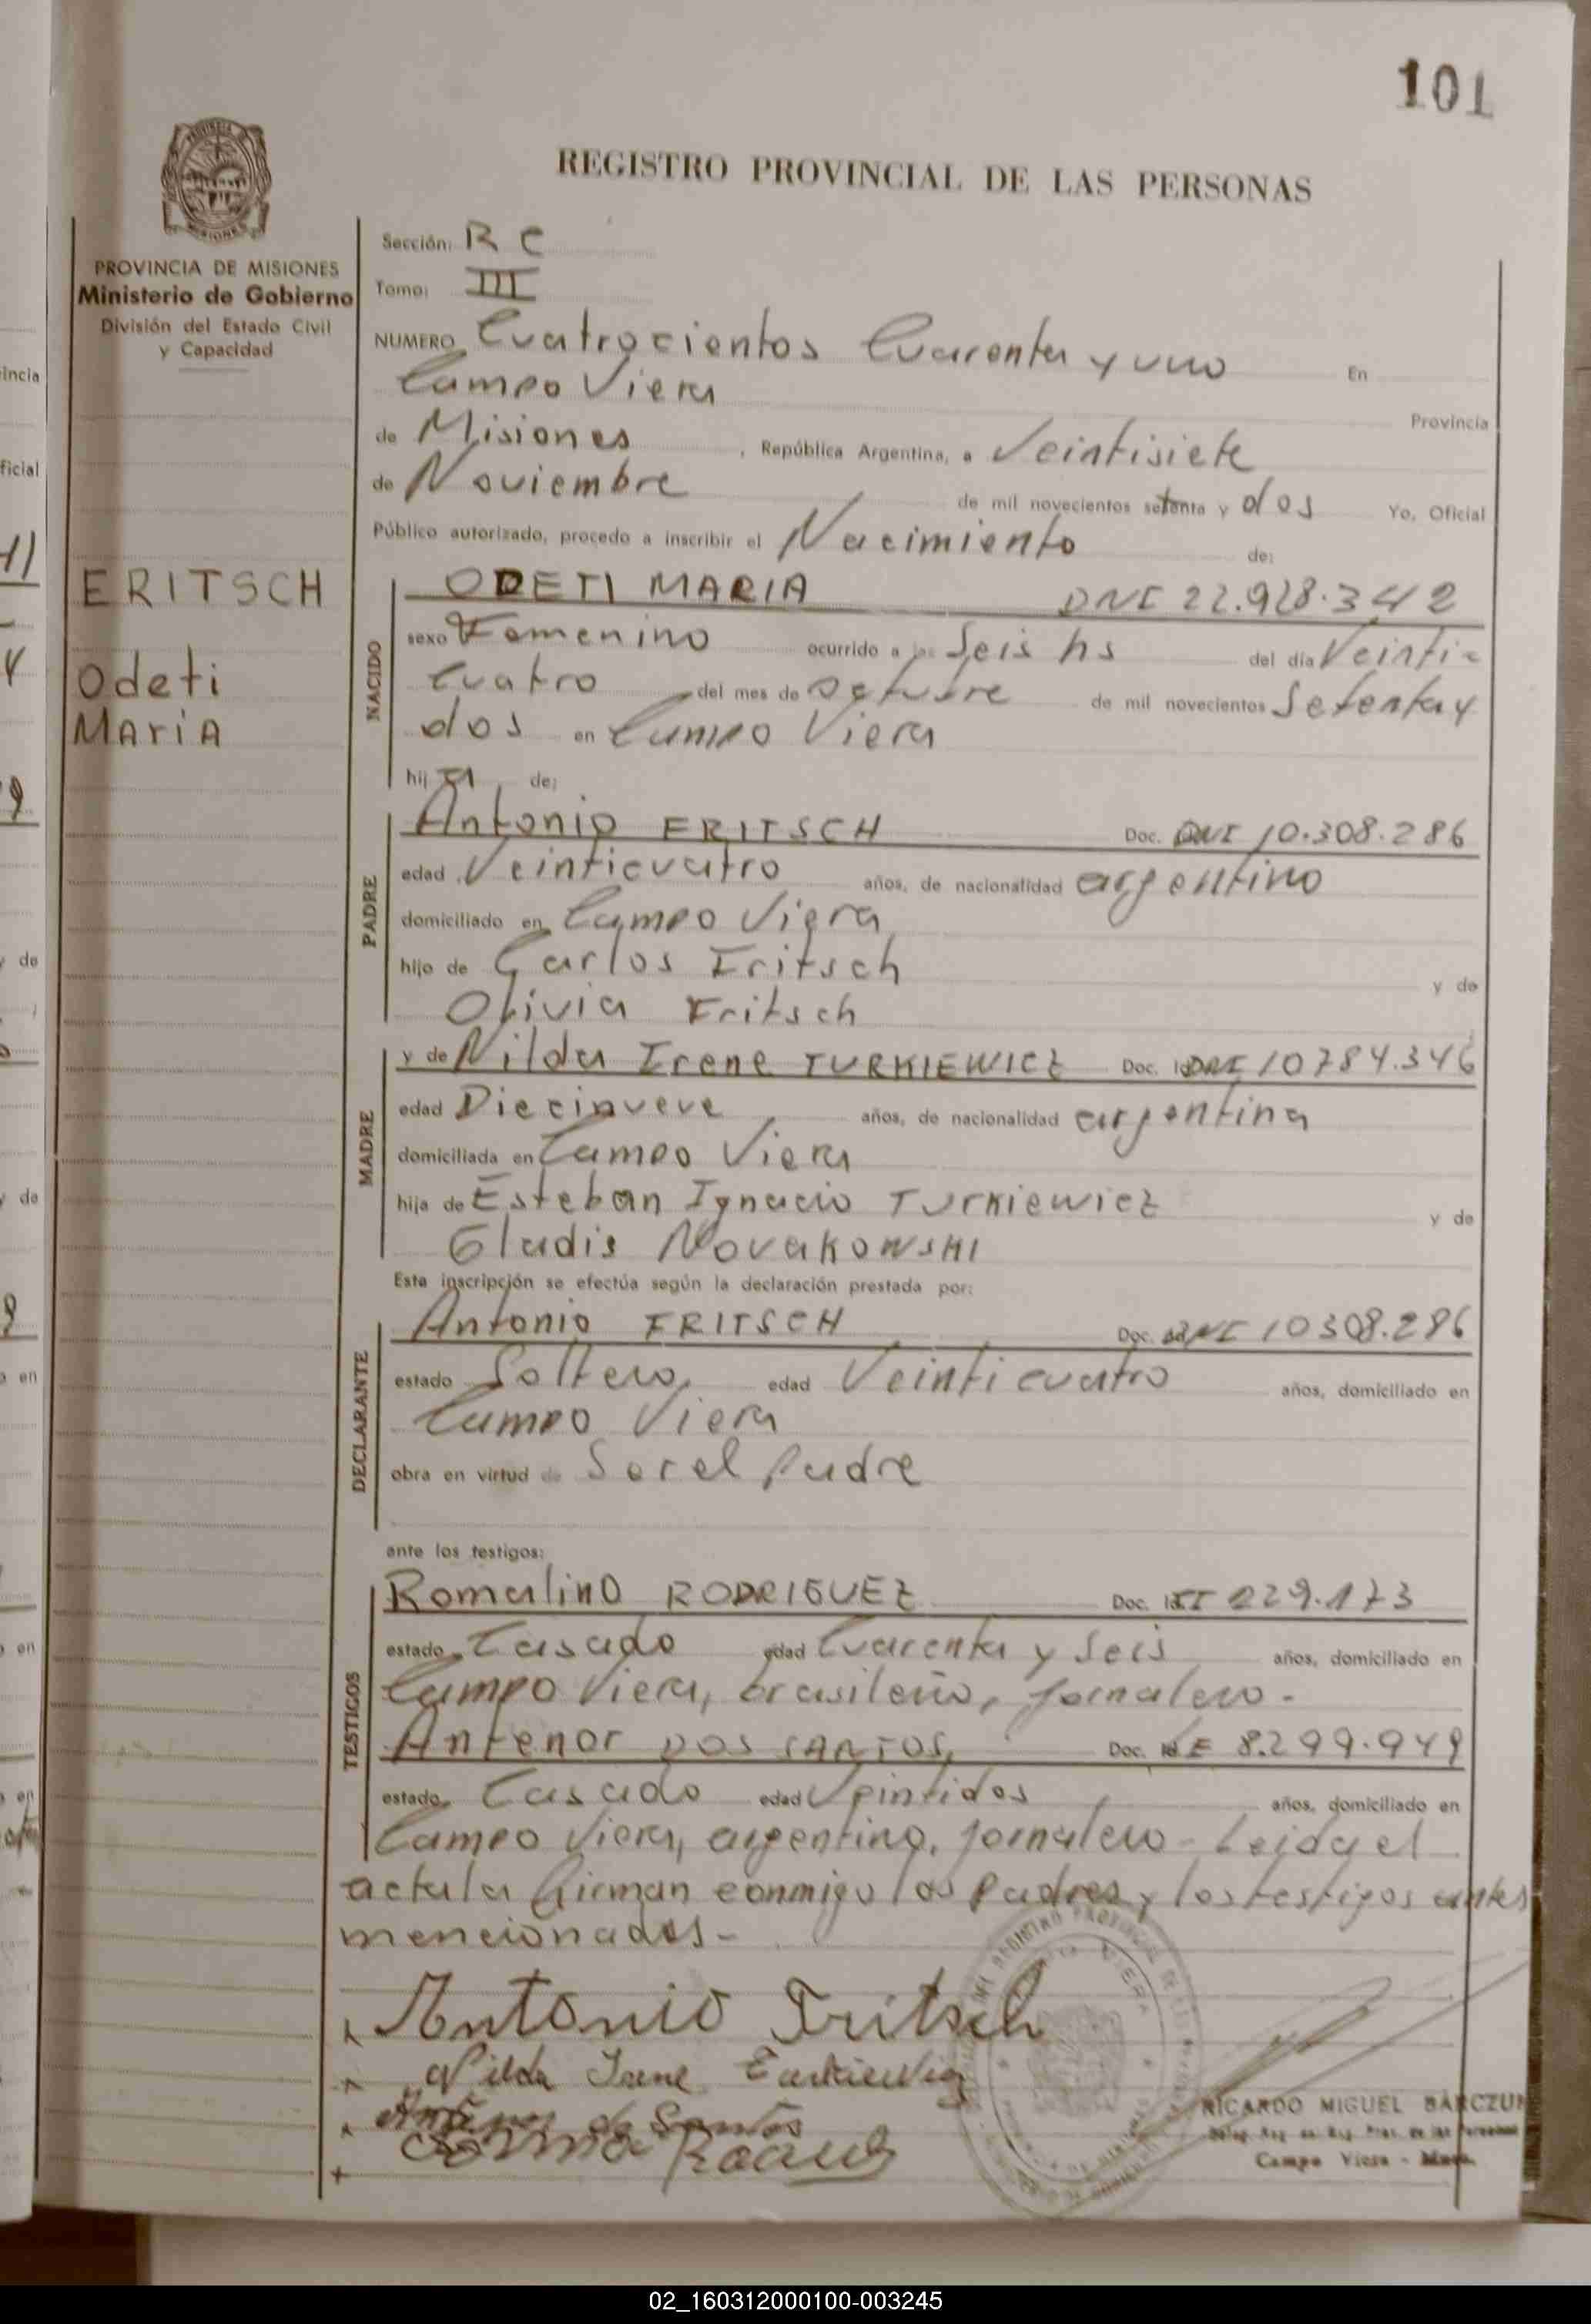 101
REGISTRO PROVINCIAL DE LAS PERSONAS
PROVINCIA DE MISIONES
Ministerio de Gobierno
División del Estado Civil
y Capacidad
Sección: R C
Tomo: III
NUMERO Cuatrocientos Cuarenta y uno En
Campo Viera Provincia
de Misiones, República Argentina, a Veintisiete
de Noviembre de mil novecientos setenta y dos Yo, Oficial
Público autorizado, procedo a inscribir el Nacimiento de:
ERITSCH
Odeti
MARIA
NACIDO
ODETI MARIA DNI 22.928.342
sexo Femenino ocurrido a las Seis hs del día Veinti-
Cuatro del mes de Octubre de mil novecientos Setenta y
dos en Campo Viera
hij a de:
PADRE
Antonio FRITSCH Doc. DNI 10.308.286
edad Veinticuatro años, de nacionalidad argentino
domiciliado en Campo Viera
hijo de Carlos Fritsch y de
Olivia Fritsch
MADRE
y de Nilda Irene TURKIEWICZ Doc. DNI 10784.346
edad Diecinueve años, de nacionalidad argentina
domiciliada en Campo Viera
hija de Esteban Ignacio Turkiewicz y de
Gladis Novakowski
Esta inscripción se efectúa según la declaración prestada por:
DECLARANTE
Antonio FRITSCH Doc. DNI 10308.286
estado Soltero edad Veinticuatro años, domiciliado en
Campo Viera
obra en virtud de Ser el Padre
ante los testigos:
TESTIGOS
Romalino RODRIGUEZ Doc. 229.173
estado Casado edad Cuarenta y Seis años, domiciliado en
Campo Viera, brasileño, jornalero.-
Antenor DOS SANTOS, Doc. LE 8.299.949
estado Casado edad Veintidos años, domiciliado en
Campo Viera, argentino, jornalero- Leida el
acta la firman conmigo los Padres y los testigos antes
mencionados-
Antonio Fritsch
Nilda Irene Turkiewicz
RICARDO MIGUEL BARCZUK
Campo Viera - Mnes.
02_160312000100-003245